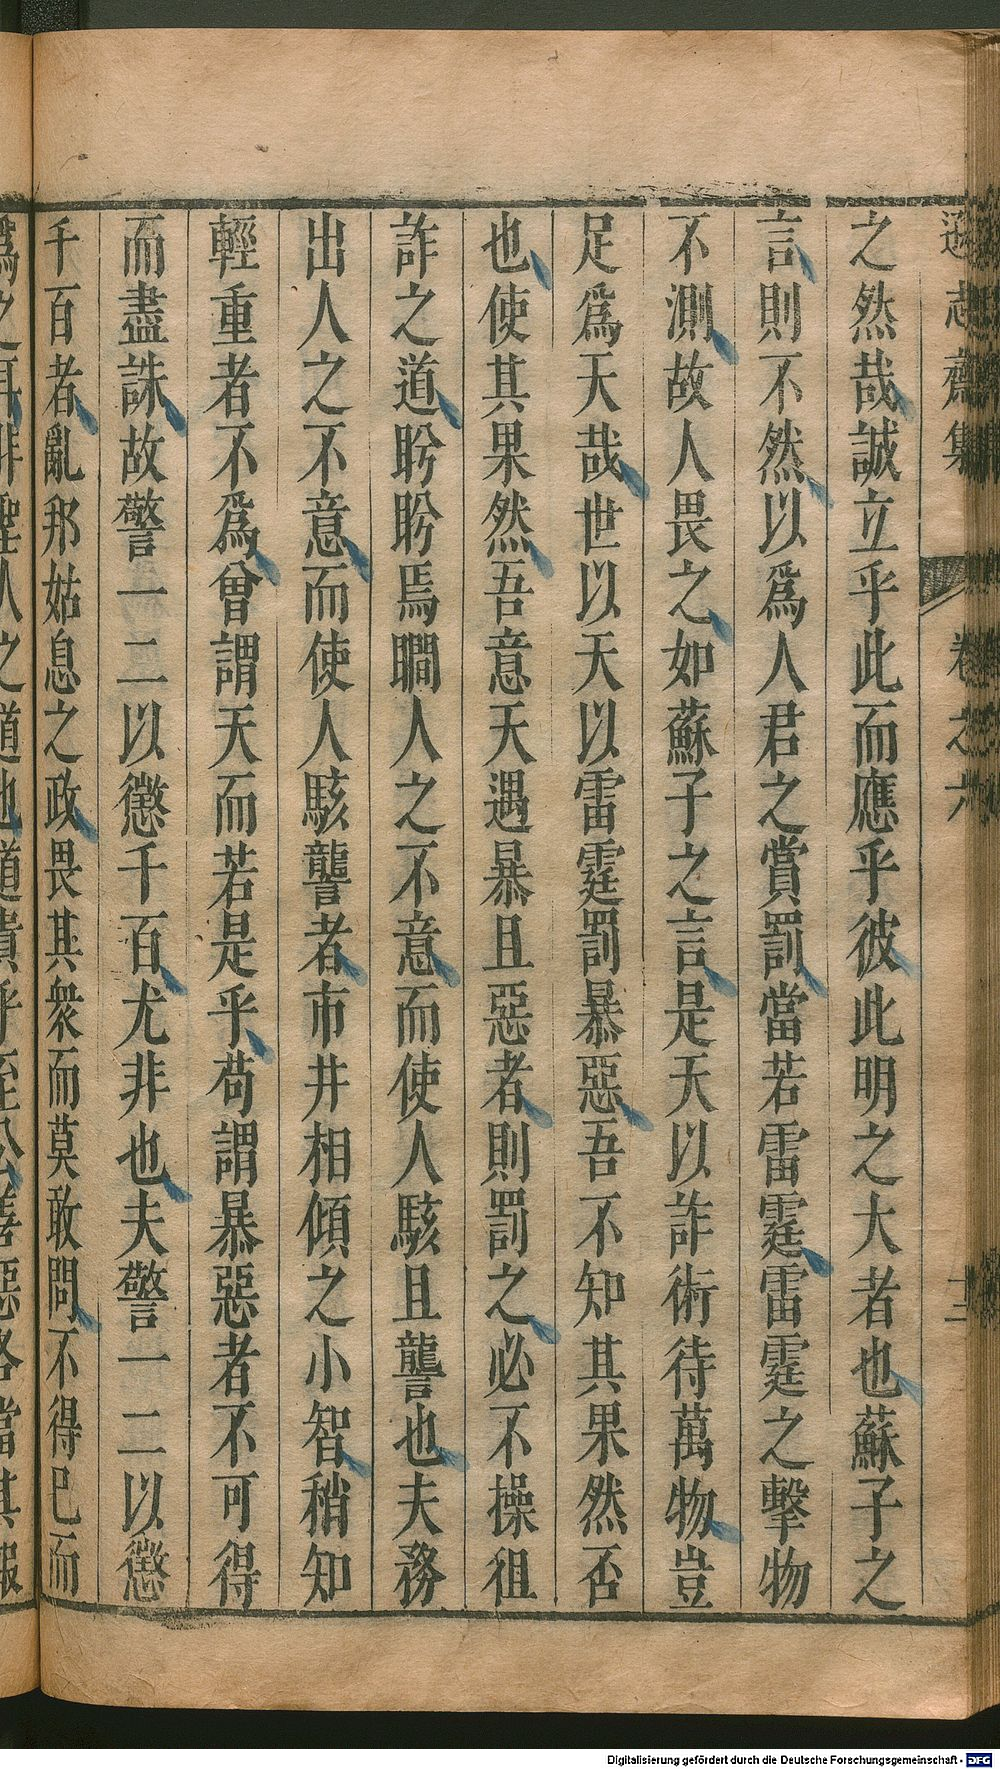 遜志齋集 卷之六 十三
之然哉誠立乎此而應乎彼此明之大者也蘇子之
言則不然以爲人君之賞罰當若雷霆雷霆之擊物
不測故人畏之如蘇子之言是天以詐術待萬物豈
足爲天哉世以天以雷霆罰暴惡吾不知其果然否
也使其果然吾意天遇暴且惡者則罰之必不操徂
詐之道盻盻焉瞷人之不意而使人駭且讋也夫務
出人之不意而使人駭讋者市井相傾之小智稍知
輕重者不爲曾謂天而若是乎苟謂暴惡者不可得
而盡誅故警一二以懲千百尤非也夫警一二以懲
千百者亂邦姑息之政畏其衆而莫敢問不得已而
爲之耳非聖人之道也道貴乎至公善惡各當其報
Digitalisierung gefördert durch die Deutsche Forschungsgemeinschaft - DFG